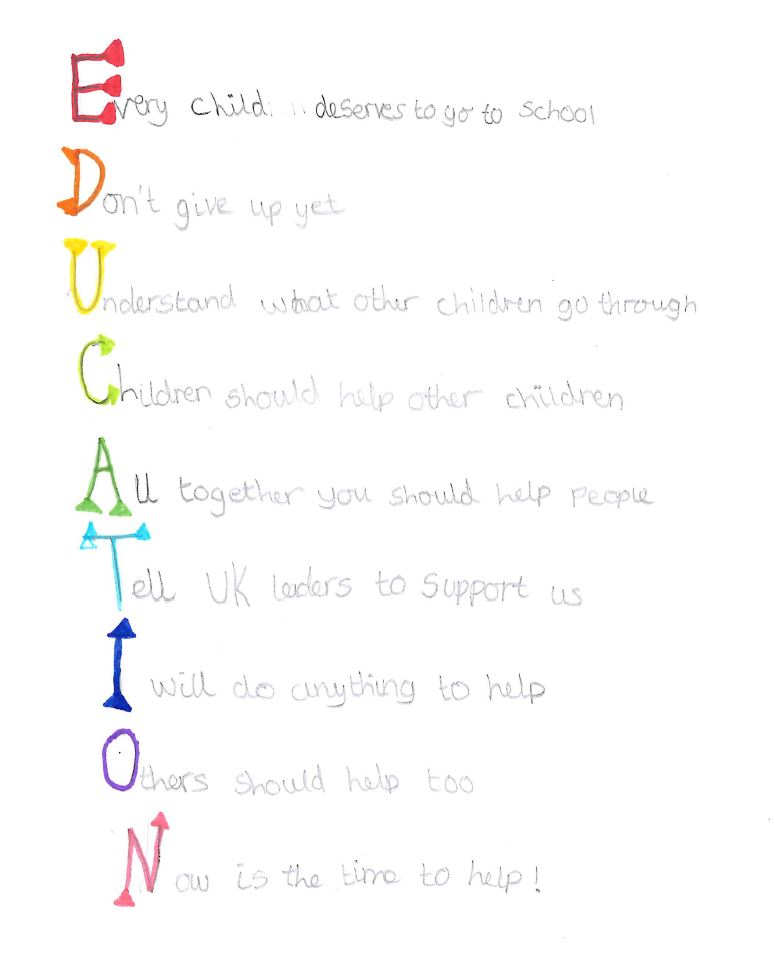 Every child deserves to go to school
Don't give up yet
Understand what other children go through
Children should help other children
All together you should help people
Tell UK leaders to support us
I will do anything to help
Others should help too
Now is the time to help!